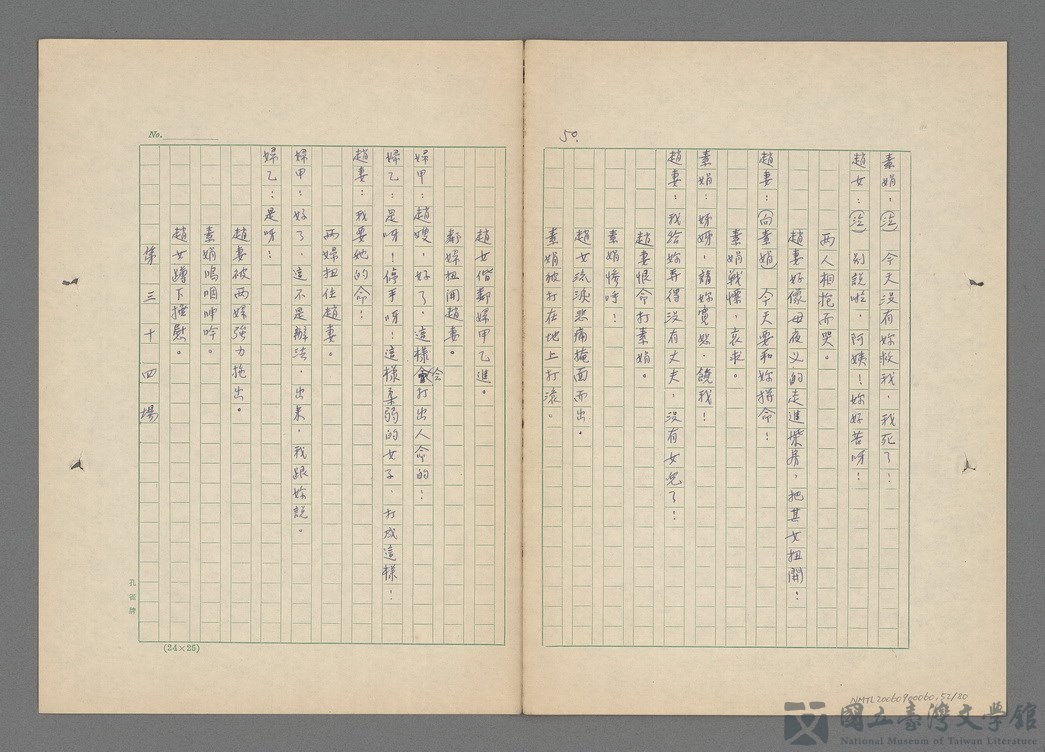 50.
素娟：(泣)今天沒有妳救我，我死了！
趙女：(泣)別說啦，阿姨！妳好苦呀！
兩人相抱而哭。
趙妻好像母夜义的走進柴房，把其女扭開！
趙妻：(向素娟)今天要和妳拼命！
素娟戰慄，哀求。
素娟：娉娉，請妳寬恕，饒我！
趙妻：我給妳弄得沒有丈夫，沒有女兒了！
趙妻恨命打素娟。
素娟慘呼！
趙女流淚悲痛掩面而出。
素娟被打在地上打滾。
No.
趙女偕鄰婦甲乙進。
鄰婦扭開趙妻。
婦甲：趙嫂，好了，這樣會打出人命的！
婦乙：是呀！停手呀！這樣柔弱的女子，打成這樣！
趙妻：我要她的命！
兩婦扭住趙妻。
婦甲：好了，這不是辦法，出來，我跟妳說。
婦乙：是呀！
趙妻被兩婦強力拖出。
素娟嗚咽呻吟。
趙女蹲下撫慰。
第三十四場
孔雀牌
(24×25)
NMTL20060900060.52/80
國立臺灣文學館
National Museum of Taiwan Literature